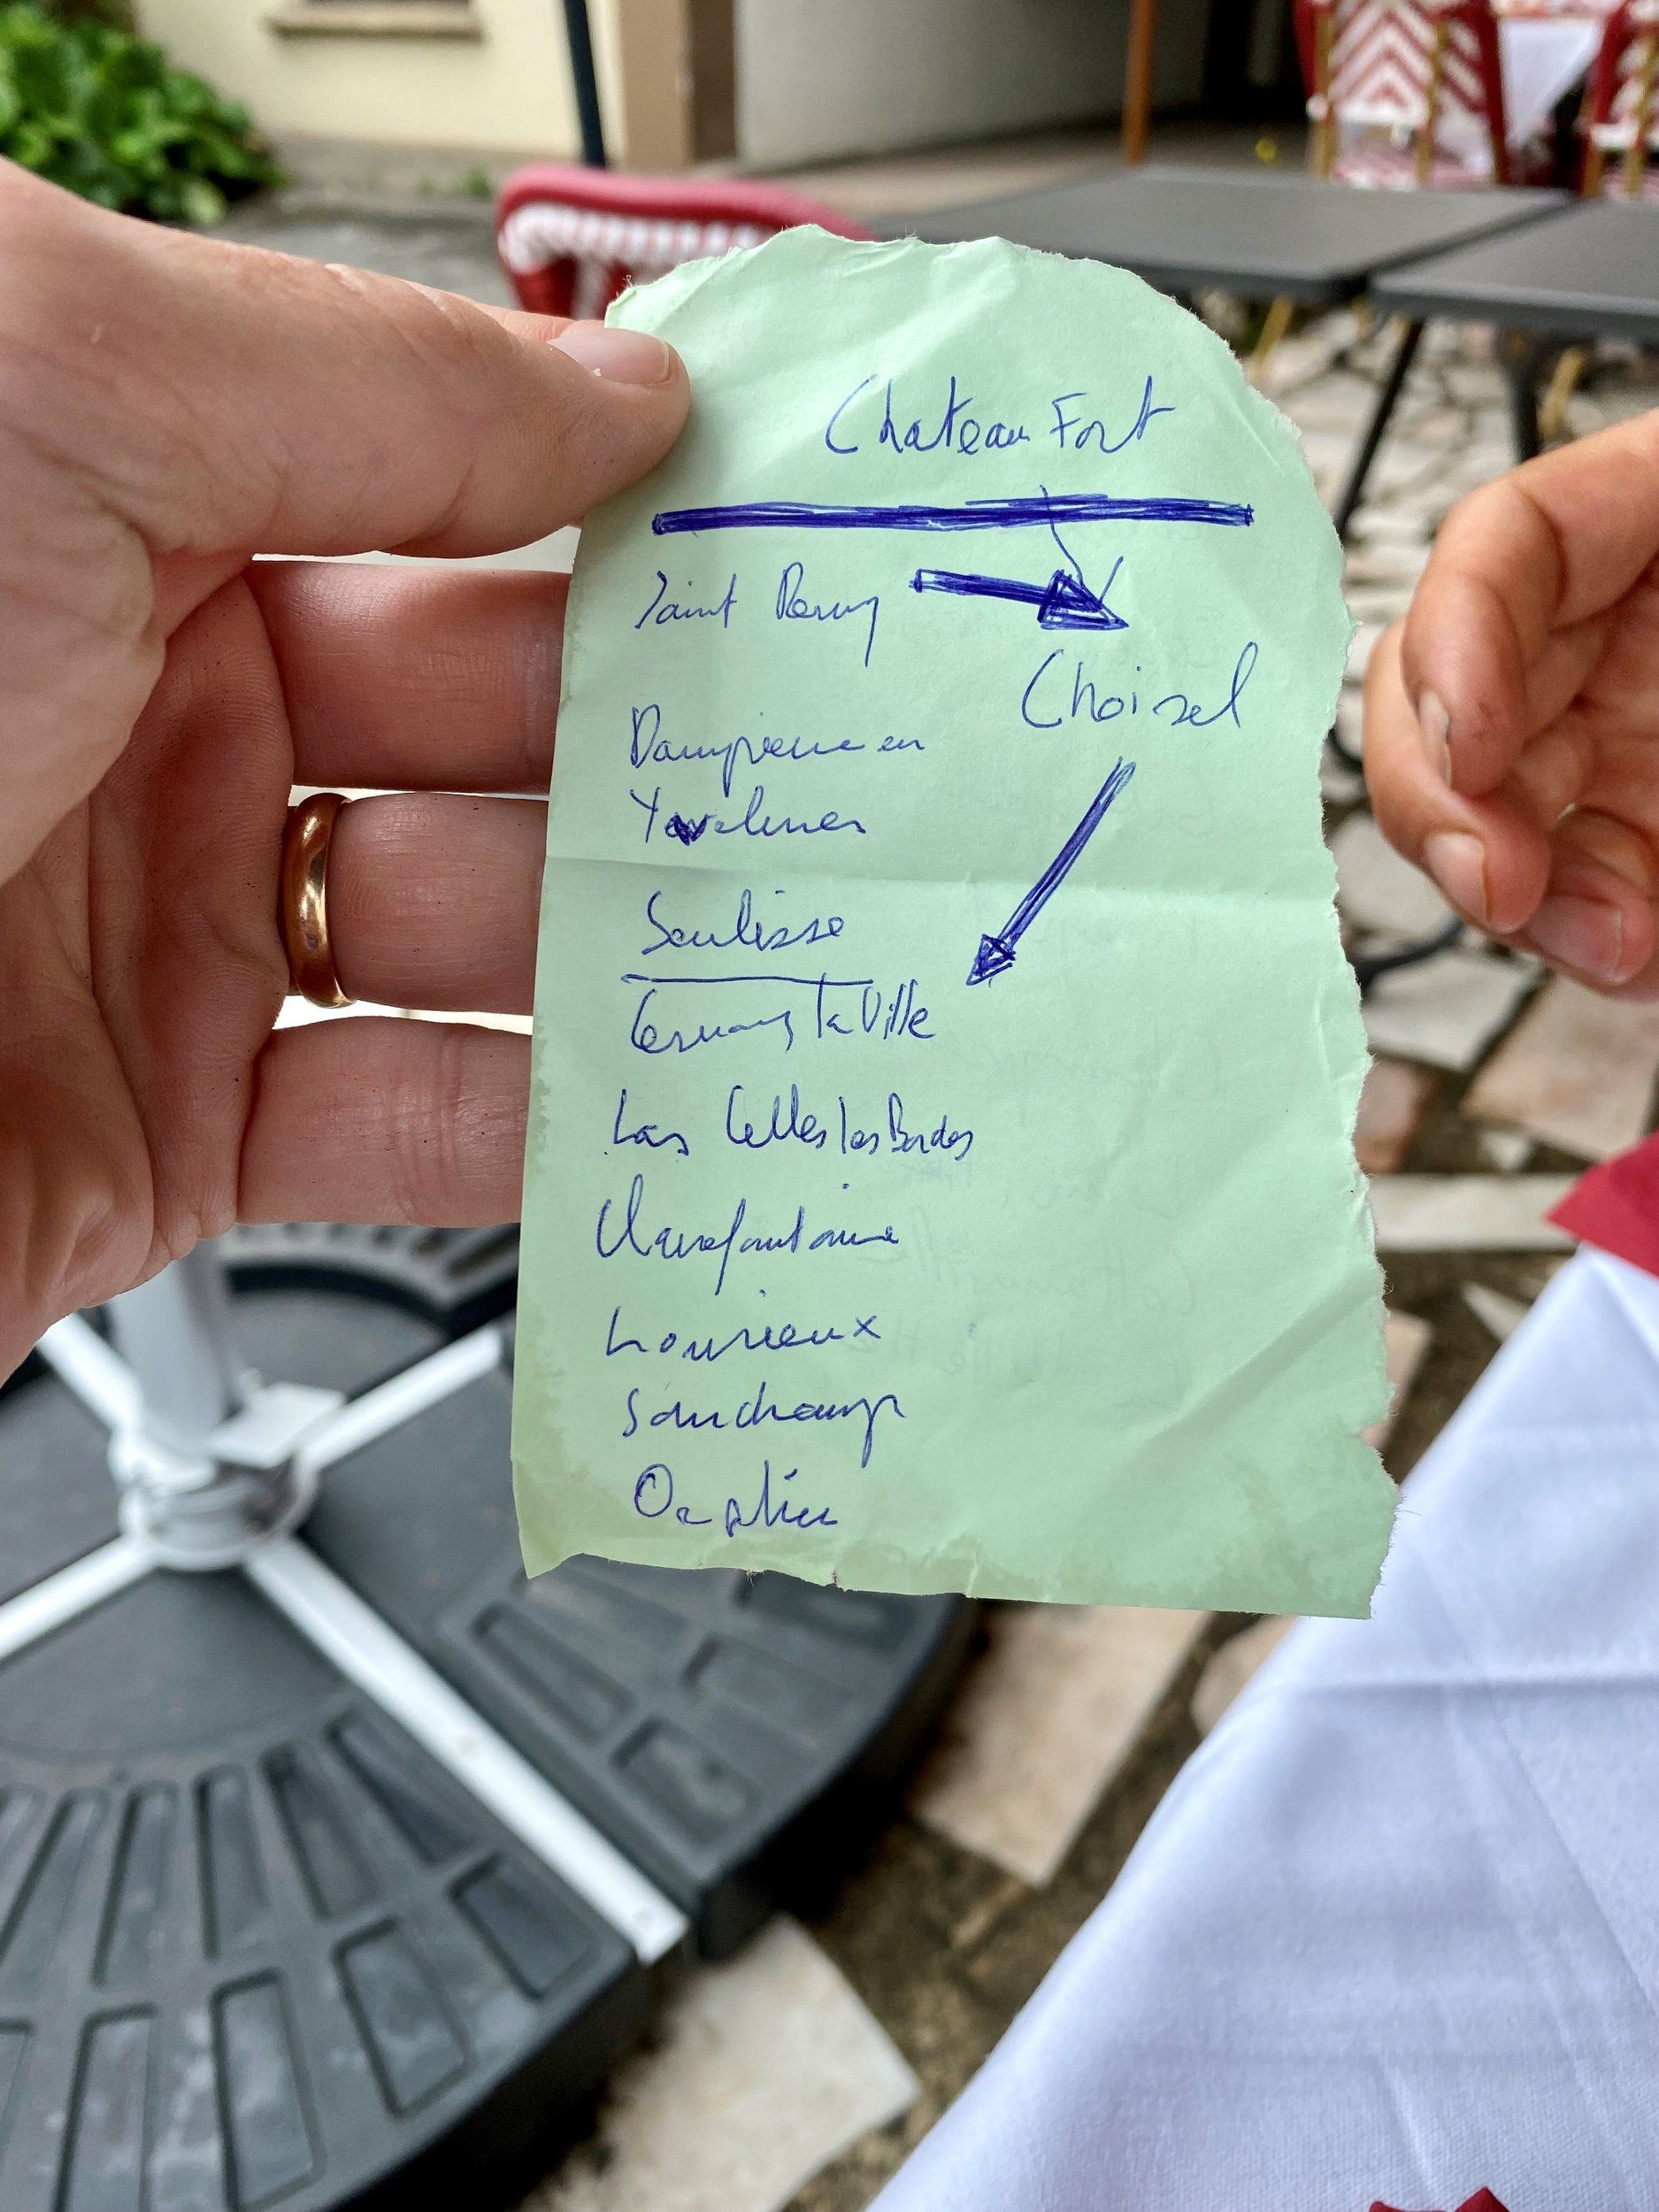 Chateau Fort
Saint Remy
Choisel
Dampierre en
Yvelines
Senlisse
Cernay la Ville
Las Celles les Bordes
Clairefontaine
Sonchamp
Orphin